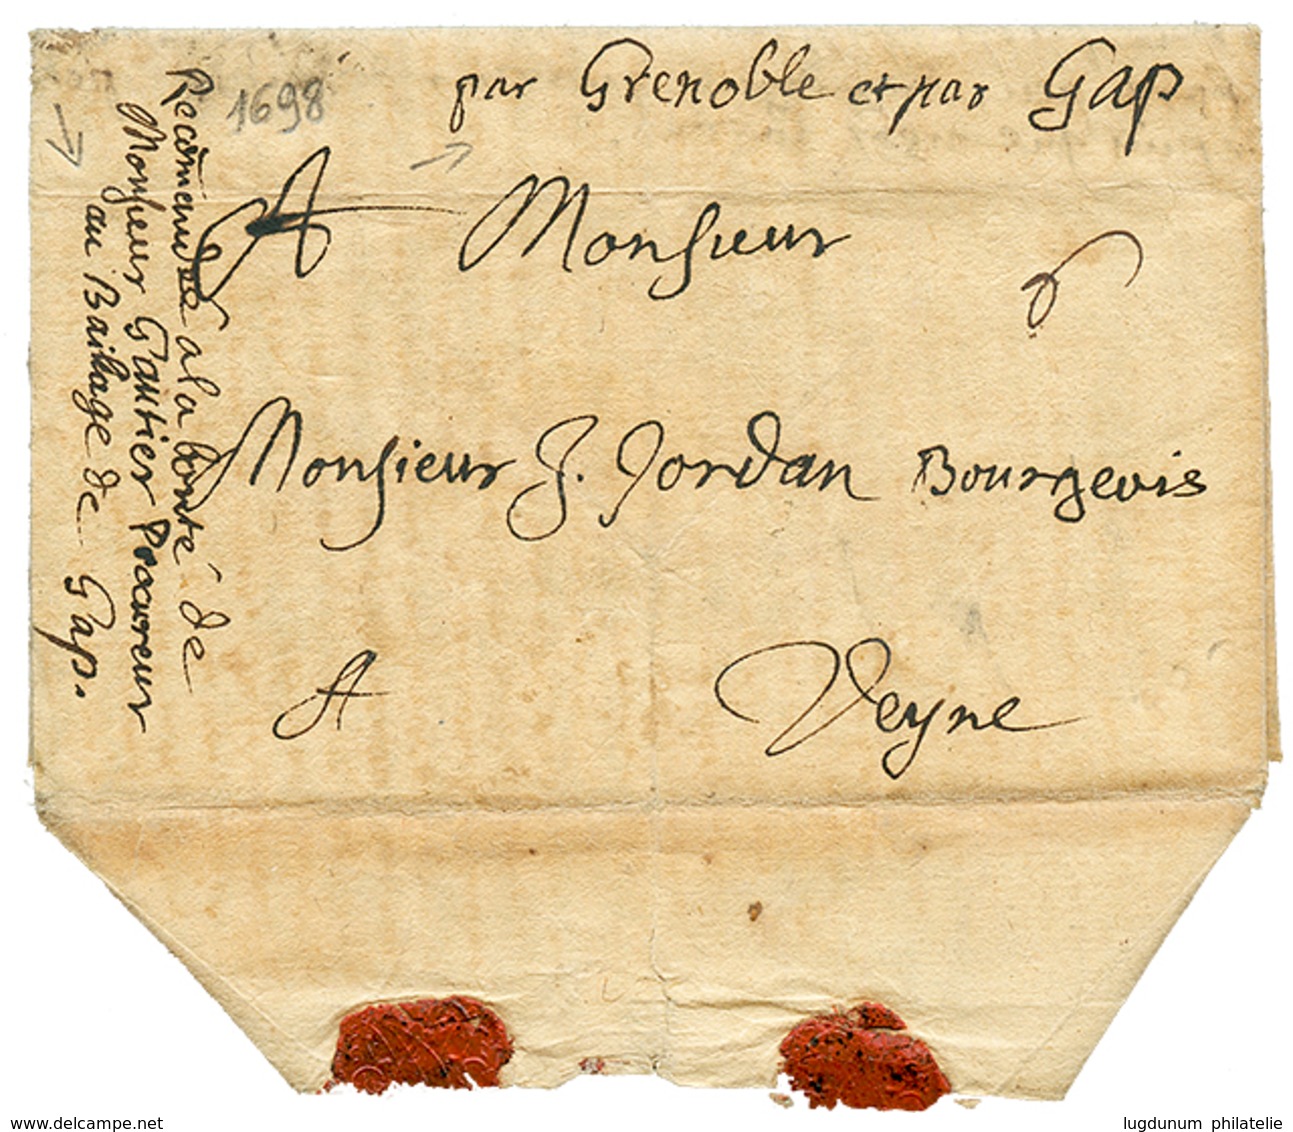 par Grenoble et par Gap
1698
A Monsieur
6
Monsieur J. Jordan Bourgeois
A Veyne
Recõmandée a la bonté de
Monsieur Gautier Procureur
au Bailliage de Gap.
delcampe.net
lugdunum philatelie